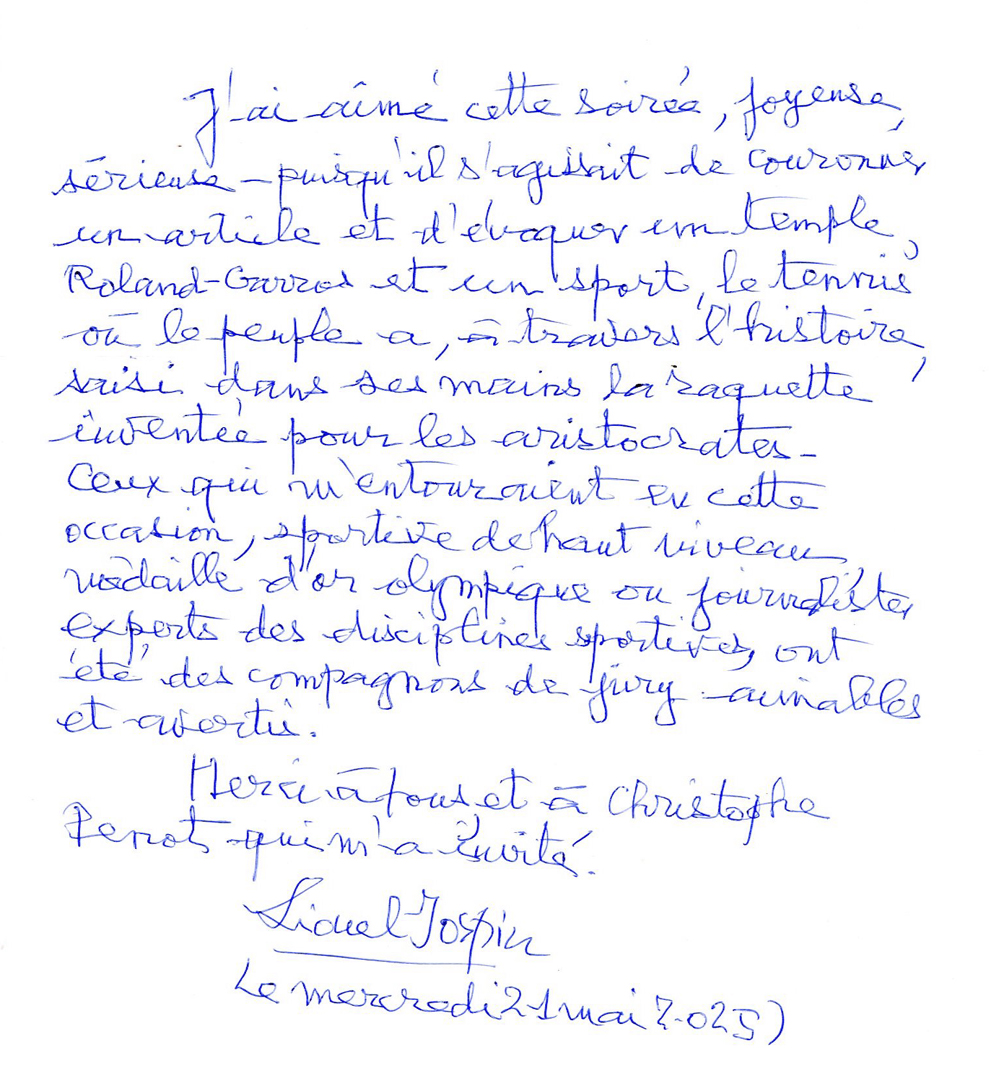 J'ai aimé cette soirée, joyeuse,
sérieuse – puisqu'il s'agissait de couronner
un article et d'évoquer un temple,
Roland-Garros et un sport, le tennis
où le peuple a, à travers l'histoire,
saisi dans ses mains la raquette
inventée pour les aristocrates –
Ceux qui m'entouraient en cette
occasion, sportive de haut niveau,
médaillé d'or olympique ou journalistes
experts des disciplines sportives, ont
été des compagnons de jury aimables
et avertis.
Merci à tous et à Christophe
Penot qui m'a invité.
Lionel Jospin
Le mercredi 21 mai 2025)